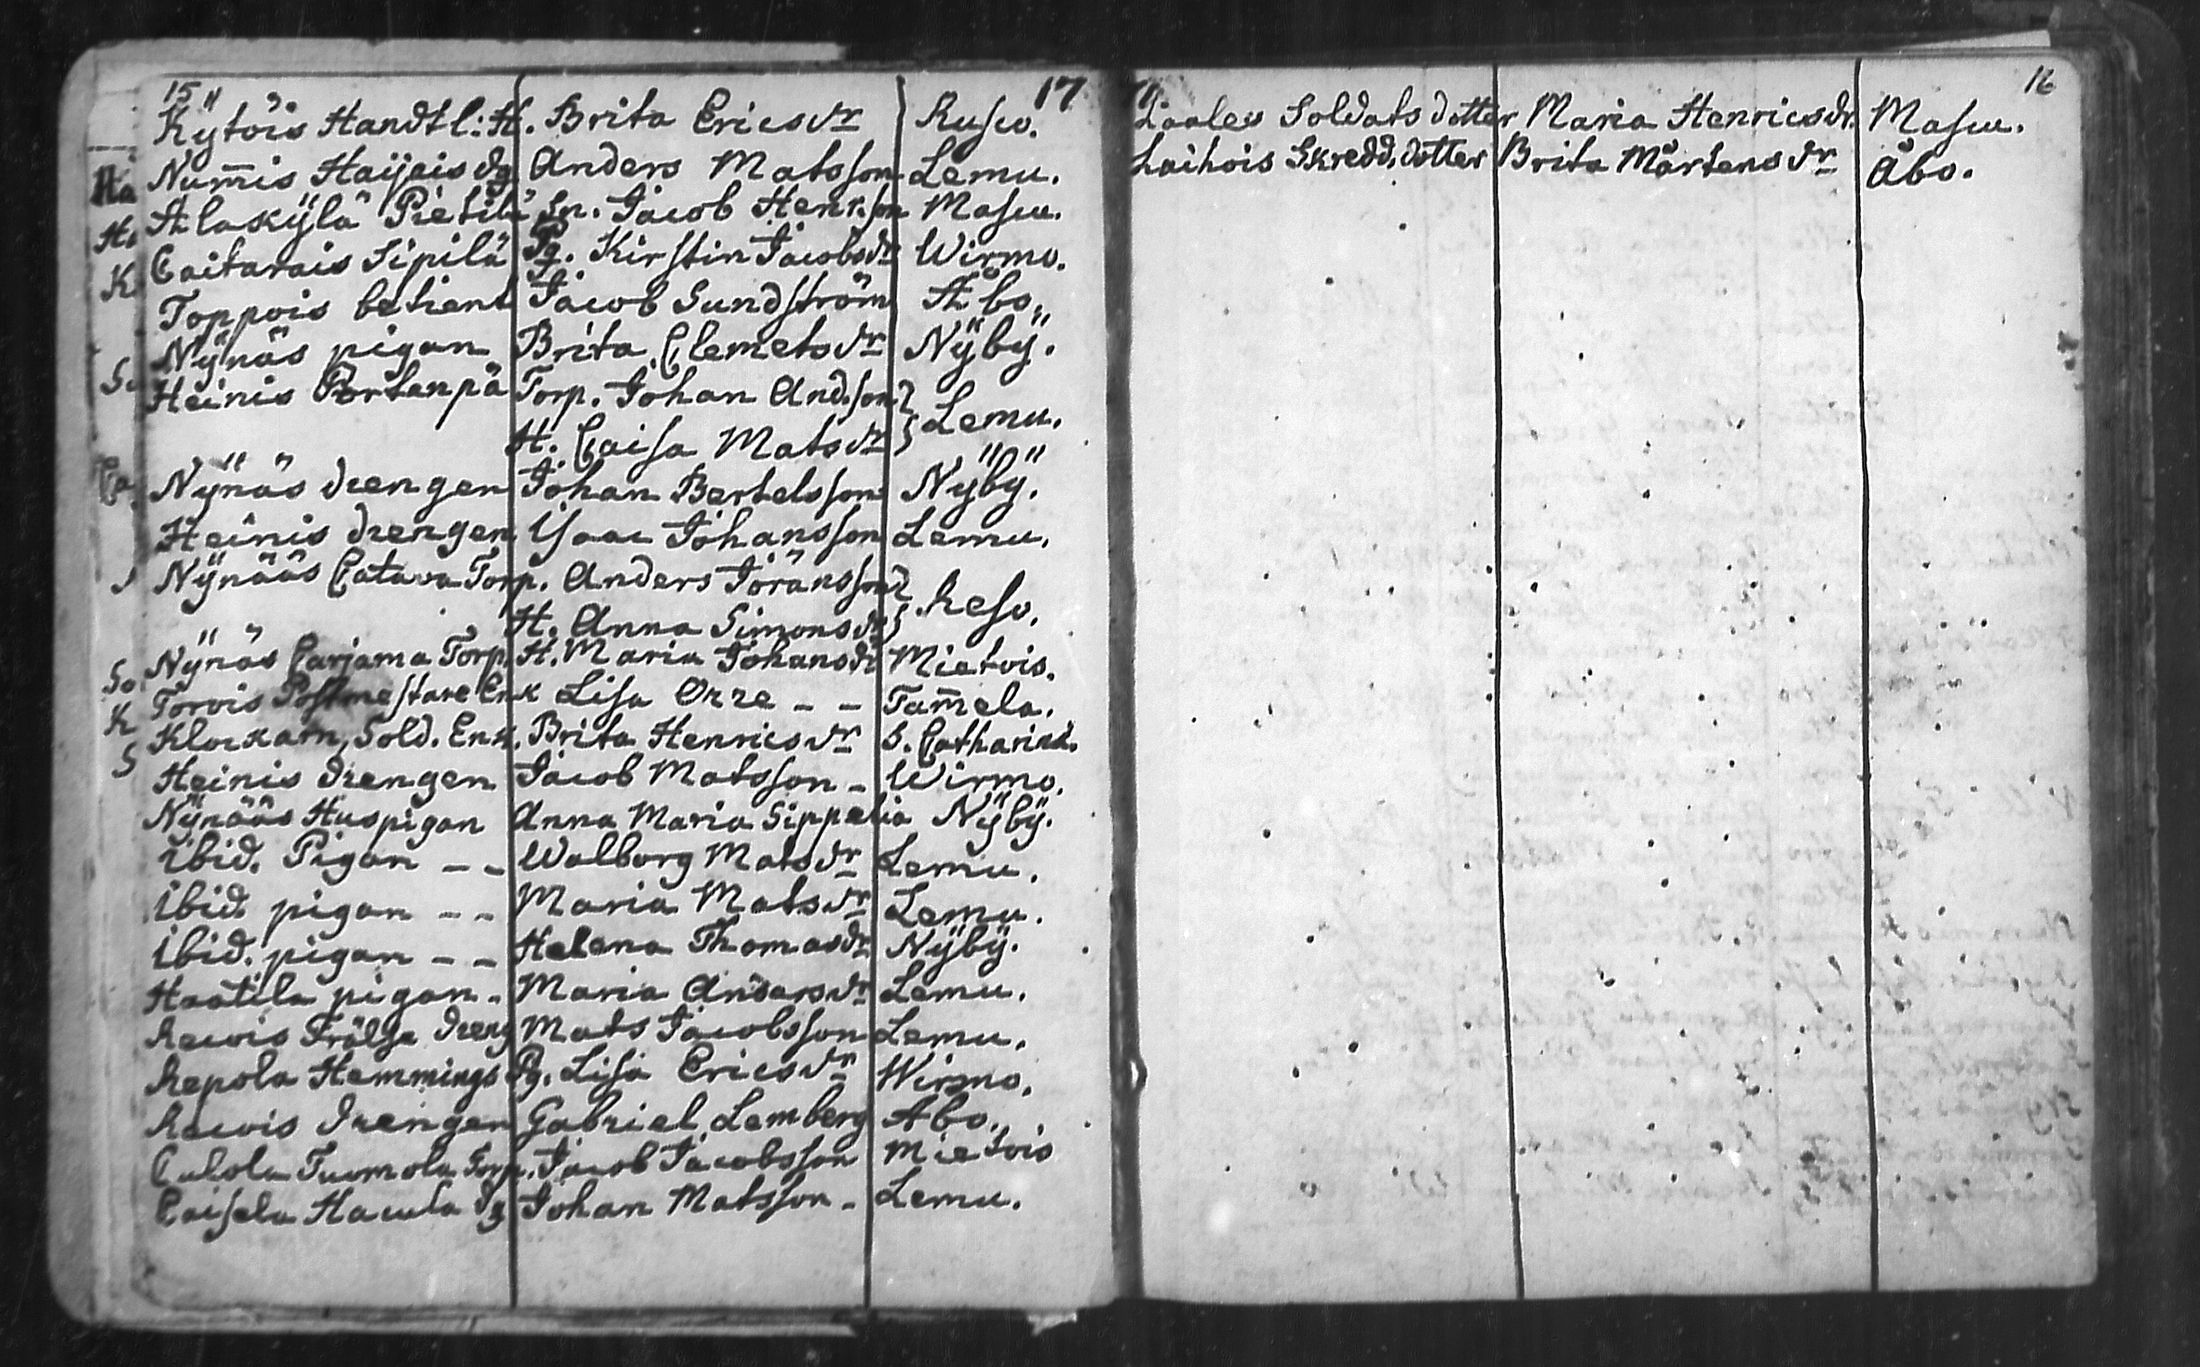 15
17
Kÿtöis Handtl: H. Brita Ericsdr Rusco.
Num̄is Haijais dg Anders Matsson Lemu.
Alakÿlä Pietilä Sn. Jacob Henr.son Mascu.
Caitarais Sipilä Pg. Kirstin Jacobsdr Wirmo.
Toppois betient Jacob Sundström Åbo.
Nÿnäs pigan Brita Clemetsdr Nÿbÿ.
Heinis Portanpä Torp. Johan And.son } Lemu.
H. Caisa Matsdr }
Nÿnäs drengen Johan Bertelsson Nÿbÿ.
Heinis drengen Isaac Johansson Lemu.
Nÿnääs Catava Torp. Anders Jöransson } Reso.
H. Anna Simonsdr }
Nÿnäs Carjama Torp. H. Maria Johansdr Mietois.
Torvis Postmestare Enk Lisa Orre - - Tam̄ela.
Klockarn, Sold. Enk. Brita Henricsdr S. Catharinæ.
Heinis drengen Jacob Matsson - Wirmo.
Nÿnääs Huspigan Anna Maria Sippelia Nÿbÿ.
ibid. Pigan - - Walborg Matsdr Lemu.
ibid. pigan - - Maria Matsdr Lemu.
ibid. pigan - - Helena Thomasdr Nÿbÿ.
Haatila pigan - Maria Andersdr Lemu.
Recois Frälse dreng Mats Jacobsson Lemu.
Repola Hemmings Pg. Lisa Ericsdr Wirmo.
Recois drengen Gabriel Lemberg Åbo.
Culola Tuomola Torp. Jacob Jacobsson Mietois
Caisela Hacula dg Johan Matsson - Lemu.
16
Soldats dotter Maria Henricsdr. Mascu.
Laihois Skredd. dotter Brita Mårtensdr Åbo.